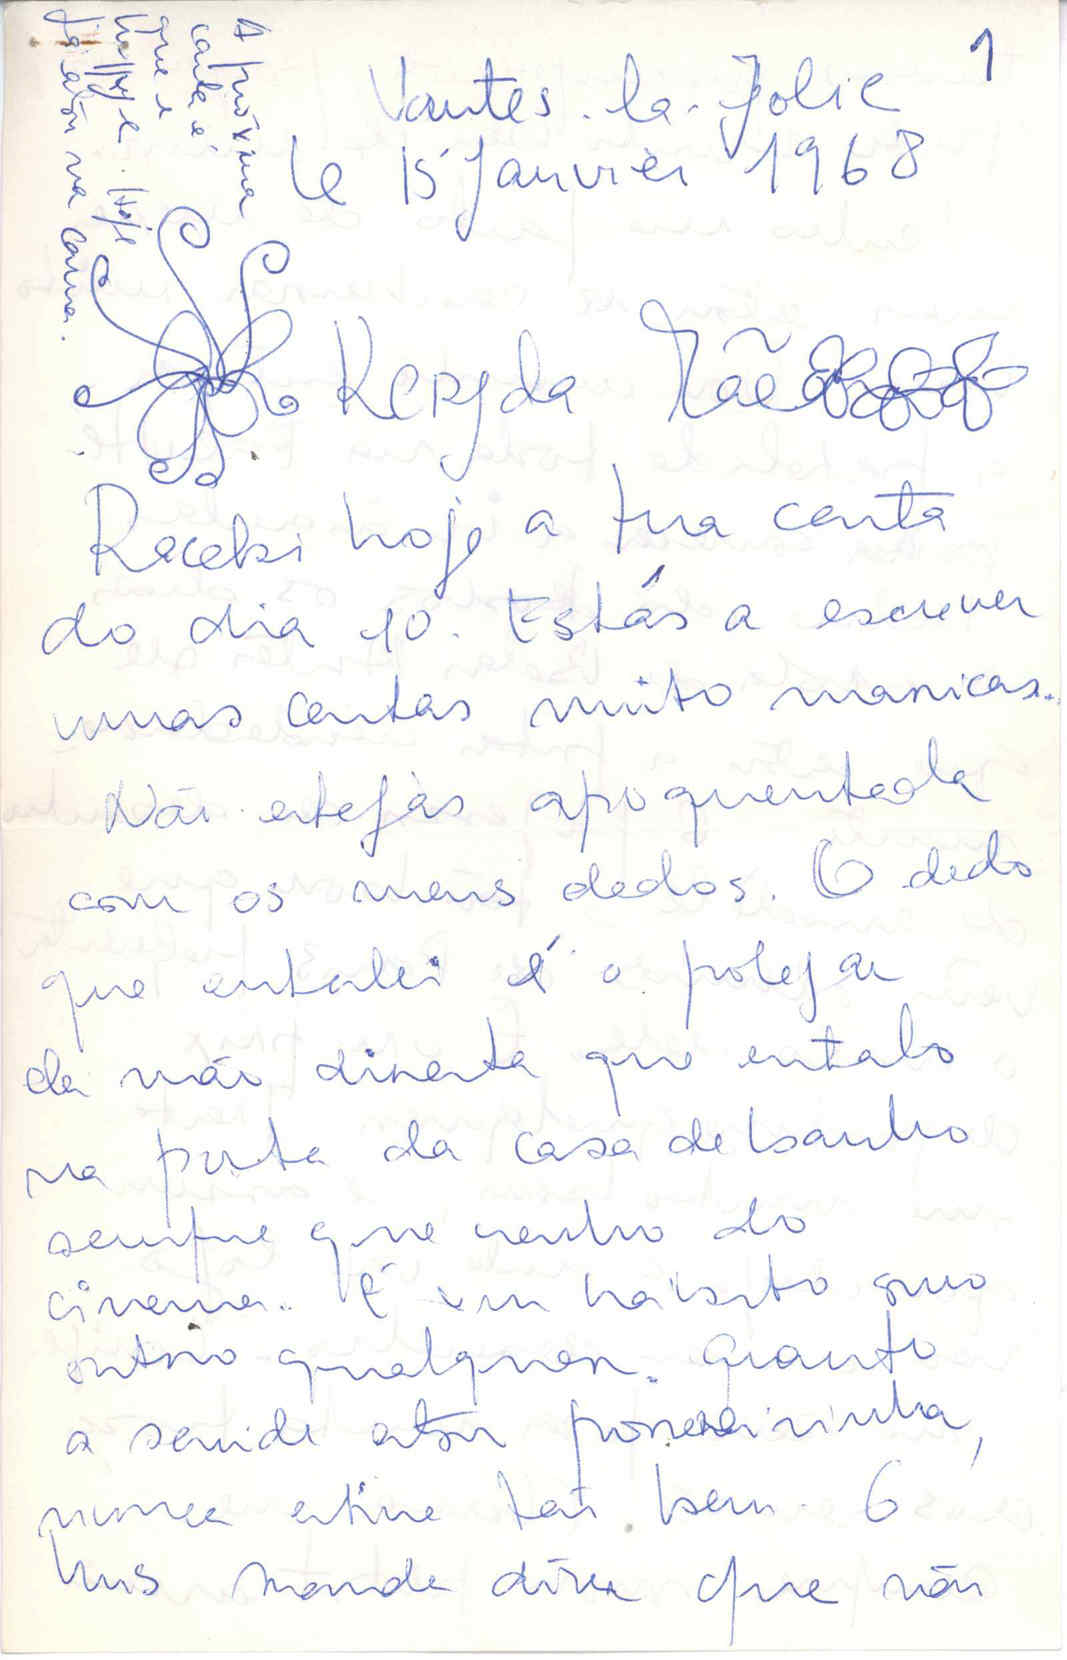 1
A próxima
carta é
que é
hoje
já estou na cama.
Mantes-la-Jolie
le 15 Janvier 1968
Querida Mãe
Recebi hoje a tua carta
do dia 10. Estás a escrever
umas cartas muito manicas..
Não estejas apoquentada
com os meus dedos. O dedo
que entalei é o polegar
da mão direita que entalo
na porta da casa de banho
sempre que venho do
cinema.. É um habito como
outro qualquer. Quanto
a saude estou porreirinha,
nunca estive tão bem. O
Luis manda dizer que não